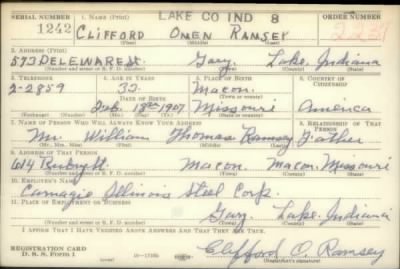 SERIAL NUMBER 1. NAME (Print) LAKE CO IND 8 ORDER NUMBER
1242 CLIFFORD OWEN RAMSEY
(First) (Middle) (Last)
2. ADDRESS (Print)
573 DELEWARE St. Gary, Lake, Indiana
(Number and street or R. F. D. number) (Town) (County) (State)
3. TELEPHONE 4. AGE IN YEARS 5. PLACE OF BIRTH 6. COUNTRY OF CITIZENSHIP
2-2859 32 Macon
DATE OF BIRTH (Town or county)
Feb. 18th 1907 Missouri America
(Exchange) (No.) (Mo.) (Day) (Yr.) (State or country)
7. NAME OF PERSON WHO WILL ALWAYS KNOW YOUR ADDRESS 8. RELATIONSHIP OF THAT PERSON
Mr. William Thomas Ramsey Father
(Mr., Mrs., Miss) (First) (Middle) (Last)
9. ADDRESS OF THAT PERSON
614 Macon, Macon, Missouri
(Number and street or R. F. D. number) (Town) (County) (State)
10. EMPLOYER'S NAME
Carnagie Illinois Steel Corp.
11. PLACE OF EMPLOYMENT OR BUSINESS
Gary Lake Indiana
(Number and street or R. F. D. number) (Town) (County) (State)
I AFFIRM THAT I HAVE VERIFIED ABOVE ANSWERS AND THAT THEY ARE TRUE.
REGISTRATION CARD
D. S. S. Form 1 Clifford O. Ramsey
(Registrant's signature)